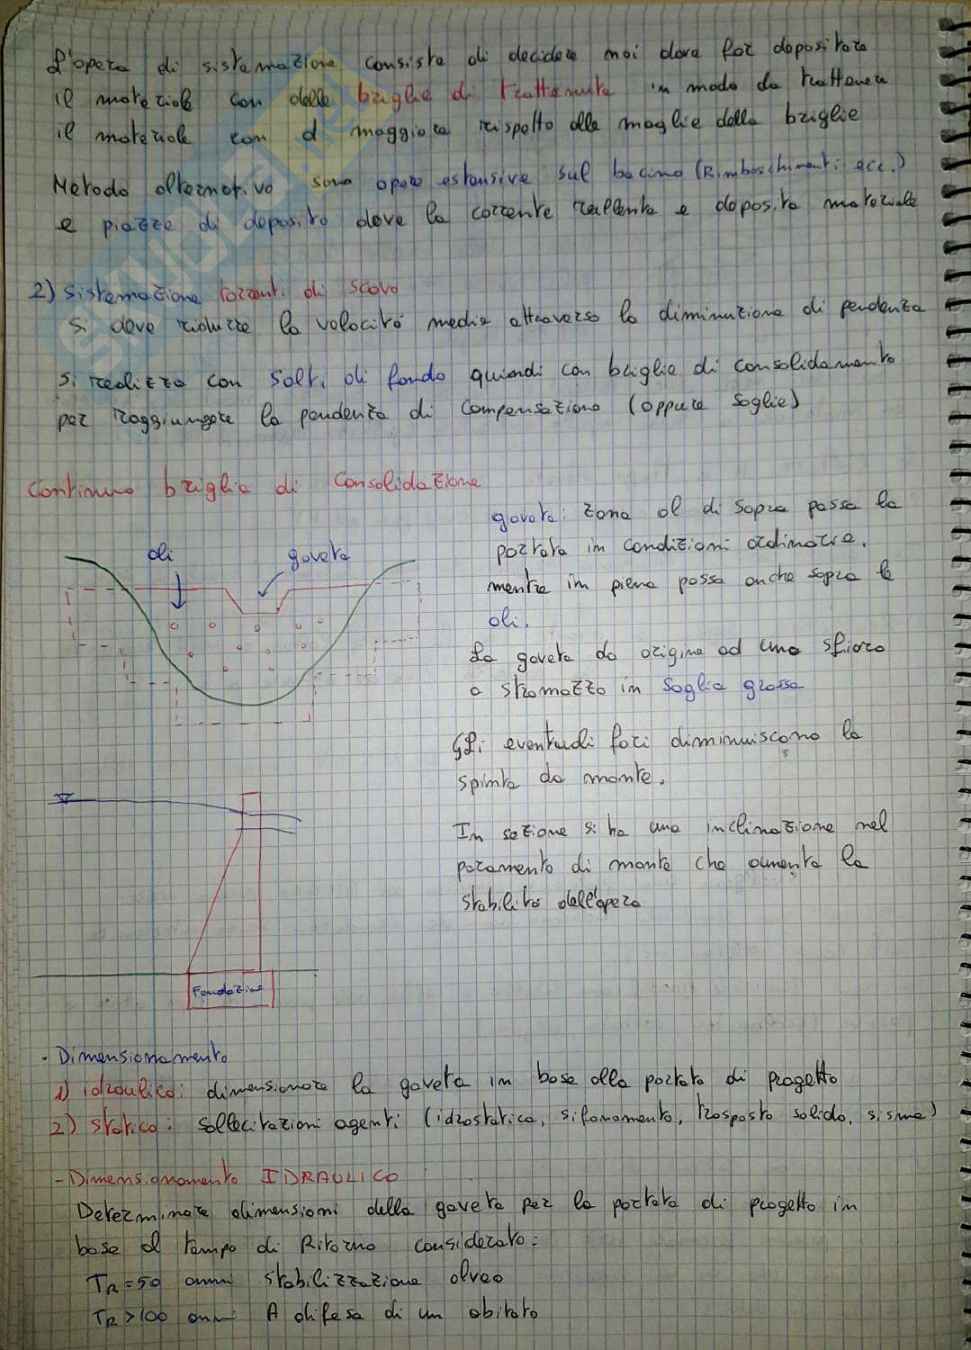 L'opera di sistemazione consiste di decidere noi dove far depositare
il materiale con delle briglie di trattenuta in modo da trattenere
il materiale con d maggiore rispetto alle maglie della briglie
Metodo alternativo sono opere estensive sul bacino (Rimboschimenti ecc.)
e piazze di deposito dove la corrente rallenta e deposita materiale
2) Sistemazione torrenti di scavo
Si deve ridurre la velocità media attraverso la diminuzione di pendenza
Si realizza con Salti di fondo quindi con briglie di consolidamento
per raggiungere la pendenza di compensazione (oppure Soglie)
Continuo briglie di Consolidazione
gaveta: zona al di sopra passa la
portata in condizioni ordinarie.
mentre in piena passa anche sopra le
ali.
ali
gaveta
La gaveta da origine ad uno sfioro
a stramazzo in Soglia grossa
Gli eventuali fori diminuiscono la
spinta da monte.
In sezione si ha una inclinazione nel
paramento di monte che aumenta la
stabilità dell'opera
Fondazione
- Dimensionamento
1) idraulico: dimensionare la gaveta in base alla portata di progetto
2) Statico: sollecitazioni agenti (idrostatica, sifonamento, trasporto solido, sisma)
- Dimensionamento IDRAULICO
Determinare dimensioni della gaveta per la portata di progetto in
base al tempo di Ritorno considerato:
TR=50 anni stabilizzazione alveo
TR>100 anni A difesa di un abitato